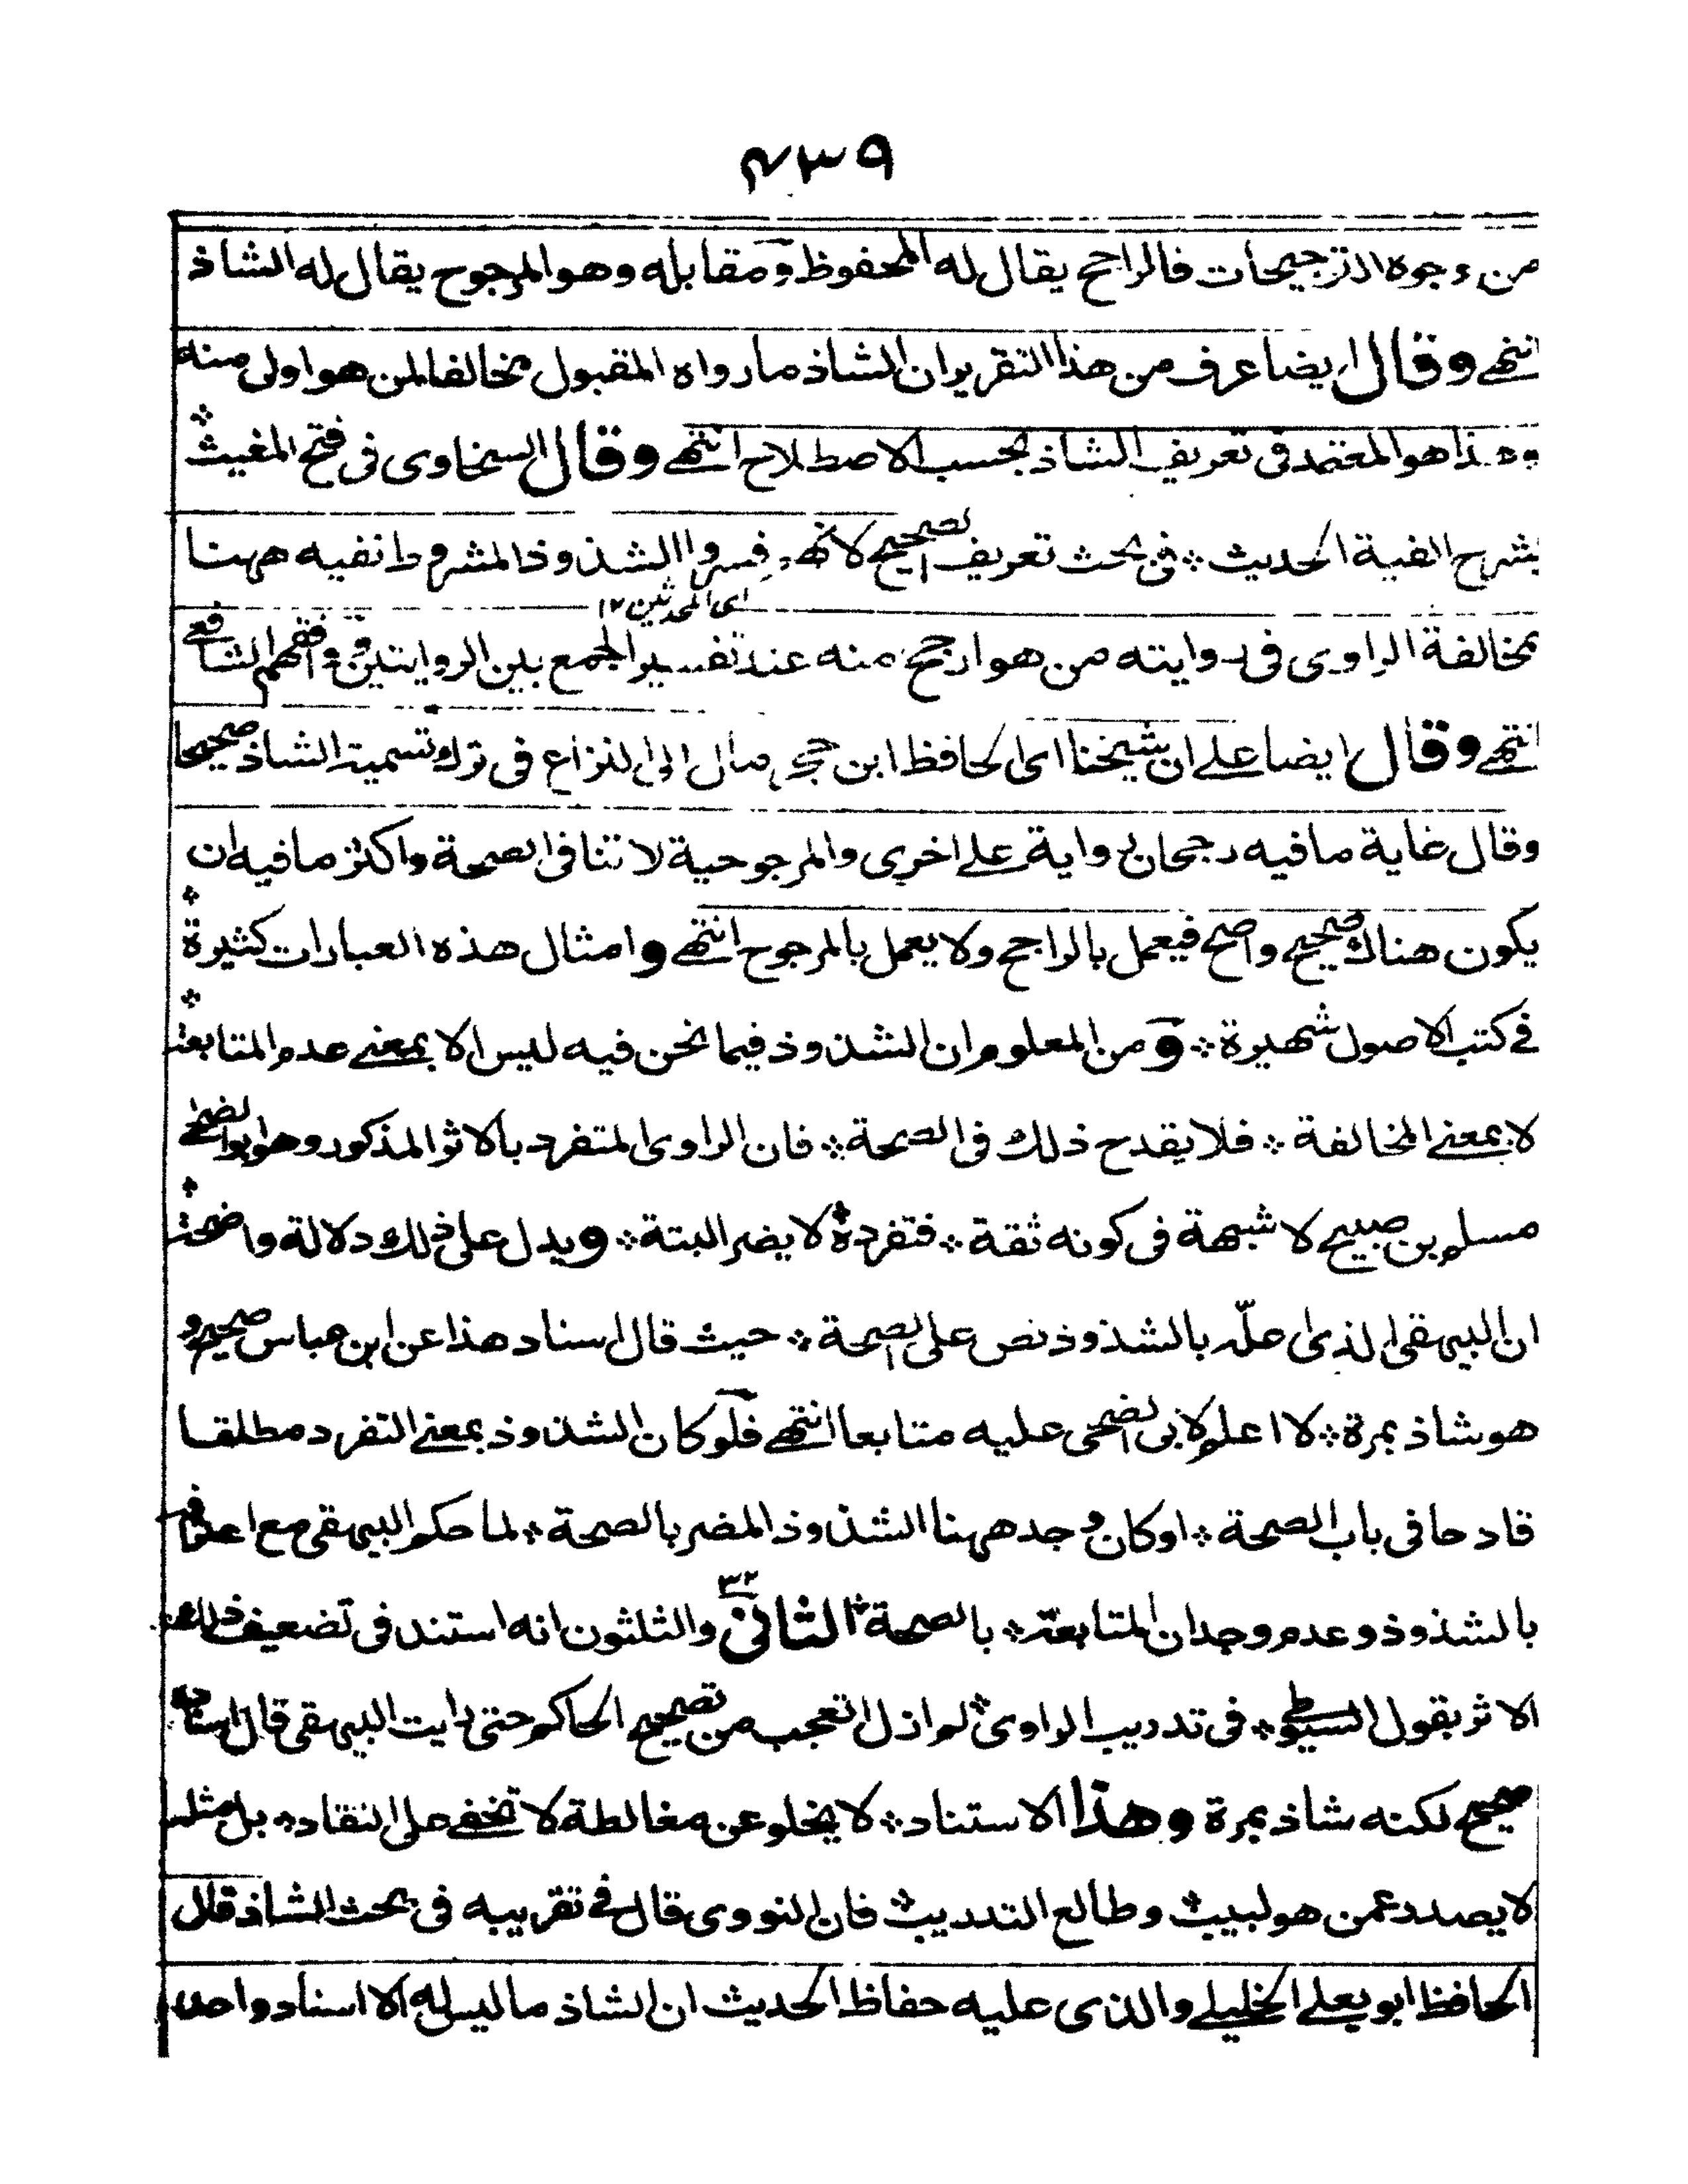 ۴۳۹
من وجوه الترجيحات فالراجح يقال له المحفوظ ومقابله وهو المرجوح يقال له الشاذ
انتهى وقال ايضا عرف من هذا التقرير ان الشاذ ما رواه المقبول مخالفا لمن هو اولى منه
وهذا هو المعتمد فى تعريف الشاذ بحسب الاصطلاح انتهى وقال السخاوى فى فتح المغيث
بشرح الفية الحديث فى بحث تعريف الصحيح لانهم فسروا الشذوذ المشروط نفيه ههنا
اى المحدثين ١٢
بمخالفة الراوى فى روايته من هو ارجح منه عند تفسير الجمع بين الروايتين ووافقهم الشافعى
انتهى وقال ايضا على ان شيخنا اى الحافظ ابن حجر مال الى النزاع فى ترك تسمية الشاذ صحيحا
وقال غاية ما فيه رجحان رواية على اخرى والمرجوحية لا تنافى الصحة واكثر ما فيه ان
يكون هناك صحيح واصح فيعمل بالراجح ولا يعمل بالمرجوح انتهى وامثال هذه العبارات كثيرة
فى كتب الاصول شهيرة ومن المعلوم ان الشذوذ فيما نحن فيه ليس الا بمعنى عدم المتابعة
لا بمعنى المخالفة فلا يقدح ذلك فى الصحة فان الراوى المتفرد بالاثر المذكور وهو ابو الضحى
مسلم بن صبيح لا شبهة فى كونه ثقة فتفرده لا يضر البتة ويدل على ذلك دلالة واضحة
ان البيهقى الذى علّه بالشذوذ نص على الصحة حيث قال اسناد هذا عن ابن عباس صحيح و
هو شاذ بمرة لا اعلم لابى الضحى عليه متابعا انتهى فلو كان الشذوذ بمعنى التفرد مطلقا
قادحا فى باب الصحة او كان وجد ههنا الشذوذ المضر بالصحة لما حكم البيهقى مع اعترافه
بالشذوذ وعدم وجدان المتابعة بالصحة الثانى ٣٢ والثلثون انه استند فى تضعيف ذلك
الاثر بقول السيوطى فى تدريب الراوى لم ازل اتعجب من تصحيح الحاكم حتى رايت البيهقى قال اسناده
صحيح لكنه شاذ بمرة وهذا الاستناد لا يخلو عن مغالطة لا تخفى على النقاد بل مثله
لا يصدر عمن هو لبيب وطالع التدريب فان النووى قال فى تقريبه فى بحث الشاذ قال
الحافظ ابو يعلى الخليلى والذى عليه حفاظ الحديث ان الشاذ ما ليس له الا اسناد واحد